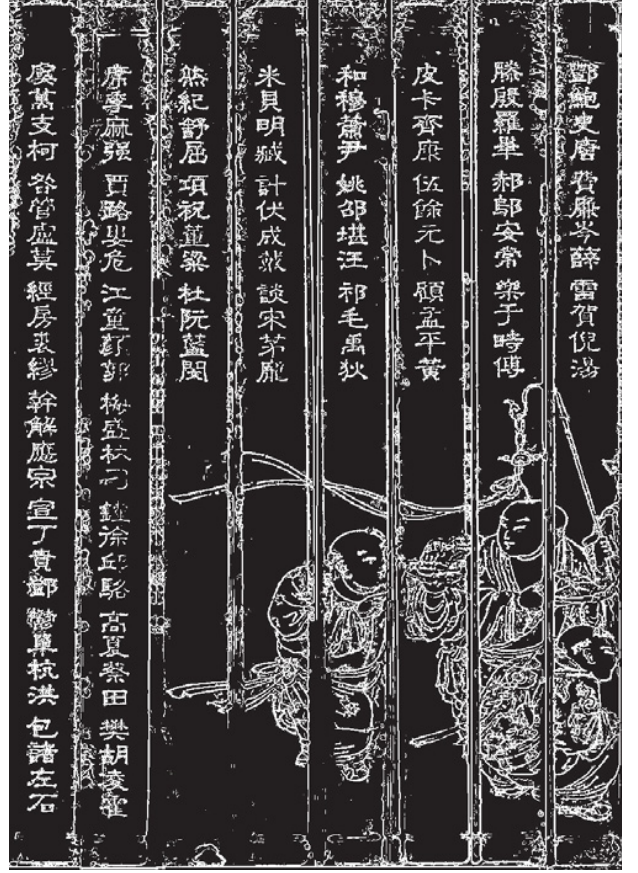 酆鮑史唐 費廉岑薛 雷賀倪湯
滕殷羅畢 郝鄔安常 樂于時傅
皮卡齊康 伍餘元卜 顧孟平黃
和穆蕭尹 姚邵堪汪 祁毛禹狄
米貝明臧 計伏成戴 談宋茅龐
熊紀舒屈 項祝董梁 杜阮藍閔
席季麻强 賈路婁危 江童顏郭 梅盛林刁 鍾徐邱駱 高夏蔡田 樊胡凌霍
虞萬支柯 昝管盧莫 經房裘繆 幹解應宗 宣丁賁鄧 鬱單杭洪 包諸左石